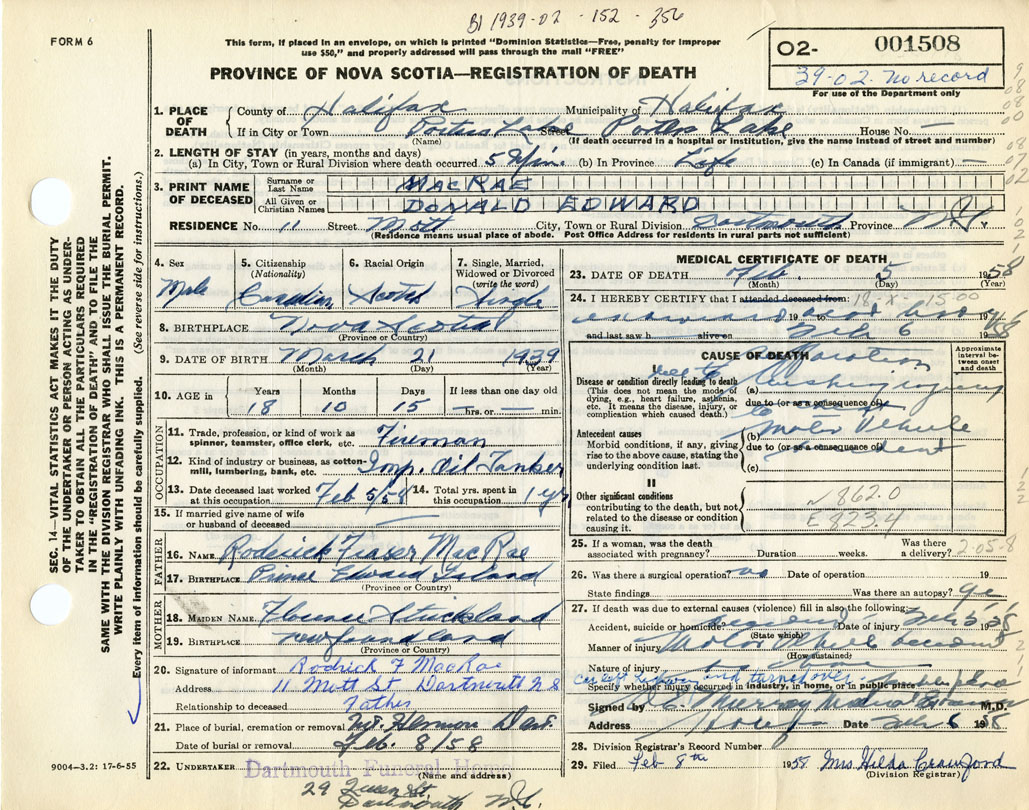 B1 1939-02-152-356
FORM 6
This form, if placed in an envelope, on which is printed "Dominion Statistics—Free, penalty for improper
use $50," and properly addressed will pass through the mail "FREE"
PROVINCE OF NOVA SCOTIA—REGISTRATION OF DEATH
02- 001508
39-02- no record
For use of the Department only
SEC. 14—VITAL STATISTICS ACT MAKES IT THE DUTY
OF THE UNDERTAKER OR PERSON ACTING AS UNDER-
TAKER TO OBTAIN ALL THE PARTICULARS REQUIRED
IN THE "REGISTRATION OF DEATH" AND TO FILE THE
SAME WITH THE DIVISION REGISTRAR WHO SHALL ISSUE THE BURIAL PERMIT.
WRITE PLAINLY WITH UNFADING INK. THIS IS A PERMANENT RECORD.
Every item of information should be carefully supplied. (See reverse side for instructions.)
1. PLACE OF DEATH County of Halifax Municipality of Halifax
If in City or Town Porters Lake Street Porters Lake House No. —
(Name) (If death occurred in a hospital or institution, give the name instead of street and number)
2. LENGTH OF STAY (in years, months and days)
(a) In City, Town or Rural Division where death occurred (b) In Province Life (c) In Canada (if immigrant) —
3. PRINT NAME OF DECEASED Surname or Last Name MACRAE
All Given or Christian Names DONALD EDWARD
RESIDENCE No. 11 Street Mott City, Town or Rural Division Dartmouth Province N.S.
(Residence means usual place of abode. Post Office Address for residents in rural parts not sufficient)
4. Sex Male
5. Citizenship (Nationality) Canadian
6. Racial Origin Scotch
7. Single, Married, Widowed or Divorced (write the word) Single
8. BIRTHPLACE Nova Scotia
(Province or Country)
9. DATE OF BIRTH March 21 1939
(Month) (Day) (Year)
10. AGE in Years Months Days If less than one day old
18 10 15 — hrs. or — min.
OCCUPATION
11. Trade, profession, or kind of work as
spinner, teamster, office clerk, etc. Fireman
12. Kind of industry or business, as cotton-
mill, lumbering, bank, etc. Imp. Oil Tanker
13. Date deceased last worked at this occupation Feb 5/58 14. Total yrs. spent in this occupation 1 yr
15. If married give name of wife
or husband of deceased —
FATHER
16. NAME Roderick Fraser MacRae
17. BIRTHPLACE Prince Edward Island
(Province or Country)
MOTHER
18. MAIDEN NAME Florence Strickland
19. BIRTHPLACE Newfoundland
(Province or Country)
20. Signature of informant Rodrick F MacRae
Address 11 Mott St Dartmouth N S
Relationship to deceased Father
21. Place of burial, cremation or removal Mt. Hermon Dart.
Date of burial or removal Feb. 8/58
22. UNDERTAKER Dartmouth Funeral Home
(Name and address)
29 Queen St.
Dartmouth N.S.
9004-3.2: 17-6-55
MEDICAL CERTIFICATE OF DEATH
23. DATE OF DEATH Feb. 5 1958
(Month) (Day) (Year)
24. I HEREBY CERTIFY that I attended deceased from: 18-X-1500
19 to
and last saw h alive on Feb 6
CAUSE OF DEATH
Approximate interval between onset and death
I
Disease or condition directly leading to death
(This does not mean the mode of
dying, e.g., heart failure, asthenia,
etc. It means the disease, injury, or
complication which caused death.)
(a) Crushing injury
due to (or as a consequence of)
Antecedent causes
Morbid conditions, if any, giving
rise to the above cause, stating the
underlying condition last.
(b) Motor Vehicle
due to (or as a consequence of) accident
(c)
II
Other significant conditions
contributing to the death, but not
related to the disease or condition
causing it.
862.0
E 823.4
25. If a woman, was the death
associated with pregnancy? Duration weeks. Was there a delivery?
2-05-8
26. Was there a surgical operation? no Date of operation 19
State findings Was there an autopsy?
27. If death was due to external causes (violence) fill in also the following:
Accident, suicide or homicide? Date of injury Feb 5 1958
(State which)
Manner of injury Motor Vehicle accident
(How sustained)
Nature of injury as above
Specify whether injury occurred in industry, in home, or in public place
Signed by M.D.
Address Date Feb 6 1958
28. Division Registrar's Record Number
29. Filed Feb 8th 1958 Mrs Hilda Crawford
(Division Registrar)